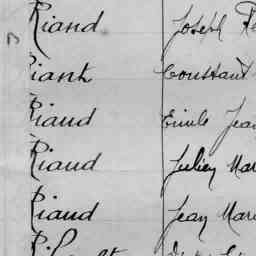 Riand Joseph
Riant Constant
Riaud Emile Jean
Riaud Julien Mar
Riaud Jean Mari